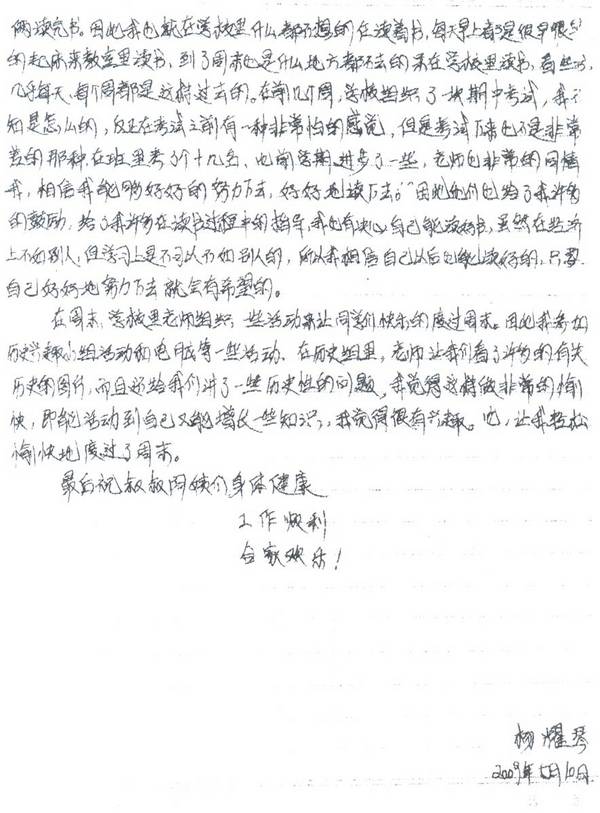 俩读完书。因此我也就在学校里什么都不想的在读着书,每天早上都是很早很早
的起床来教室里读书,到了周末也是什么地方都不去的呆在学校里读书,看些书,
几乎每天、每个周都是这样过去的。在前几个周,学校组织了一次期中考试,我不
知是怎么的,反正在考试之前有一种非常怕的感觉,但是考试下来也不是非常
差的那种,在班里考了个十几名,比前学期进步了一些,老师也非常的同情
我,相信我能够好好的努力下去,好好地读下去。因此他们也给了我许多
的鼓励,给了我许多在读书过程中的指导,我也有决心自己能读好书,虽然在经济
上不如别人,但学习上是不可以不如别人的,所以我相信自己以后也能读好的,只要
自己好好地努力下去就会有希望的。
在周末,学校里老师组织一些活动来让同学们快乐的度过周末。因此我参加
历史兴趣小组活动和电脑等一些活动、在历史组里,老师让我们看了许多的有关
历史的图片,而且还给我们讲了一些历史性的问题,我觉得这样做非常的愉
快,即能活动到自己又能增长一些知识,我觉得很有兴趣。也让我轻松
愉快地度过了周末。
最后祝叔叔阿姨们身体健康
工作顺利
合家欢乐!
杨耀琴
2009年 月10日